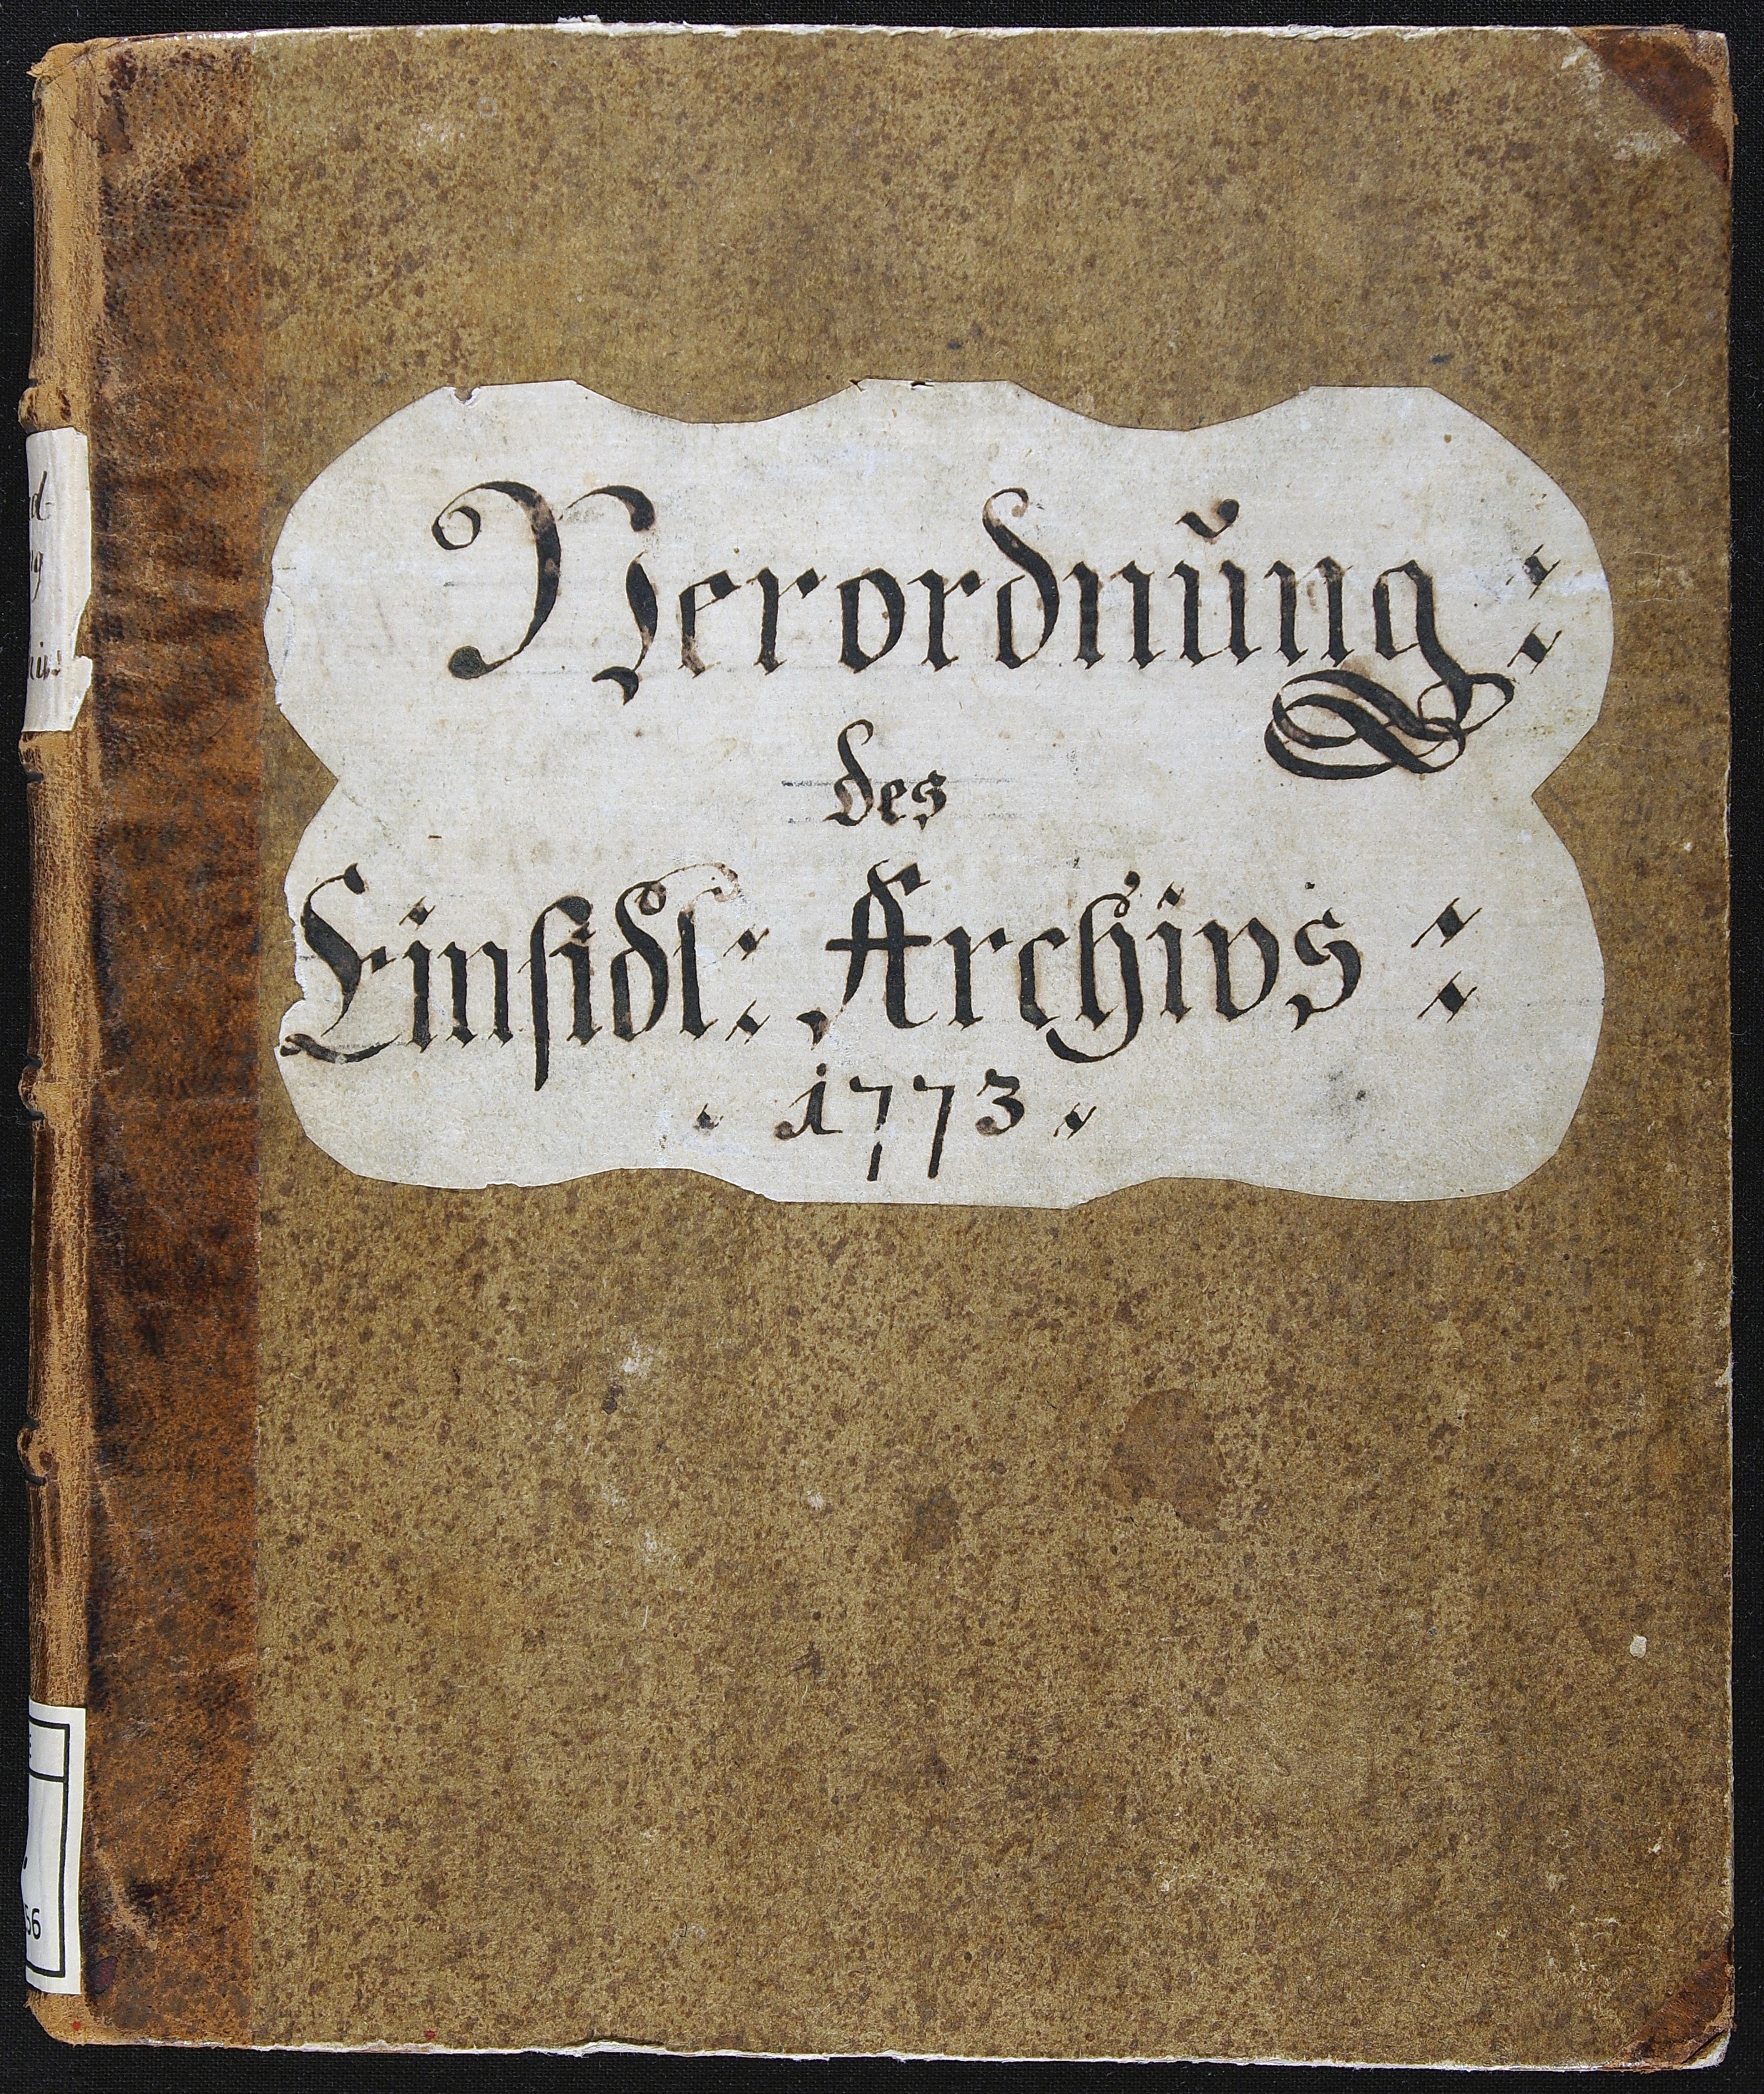 Verordnŭng:
des
Einsidl: Archivs:
. 1773 .
56